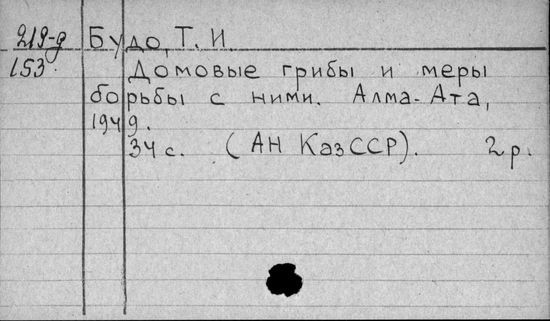 219-д Будо, Т. И.
153. Домовые грибы и меры
борьбы с ними. Алма-Ата,
1949.
34 с. (АН КазССР). 2 р.